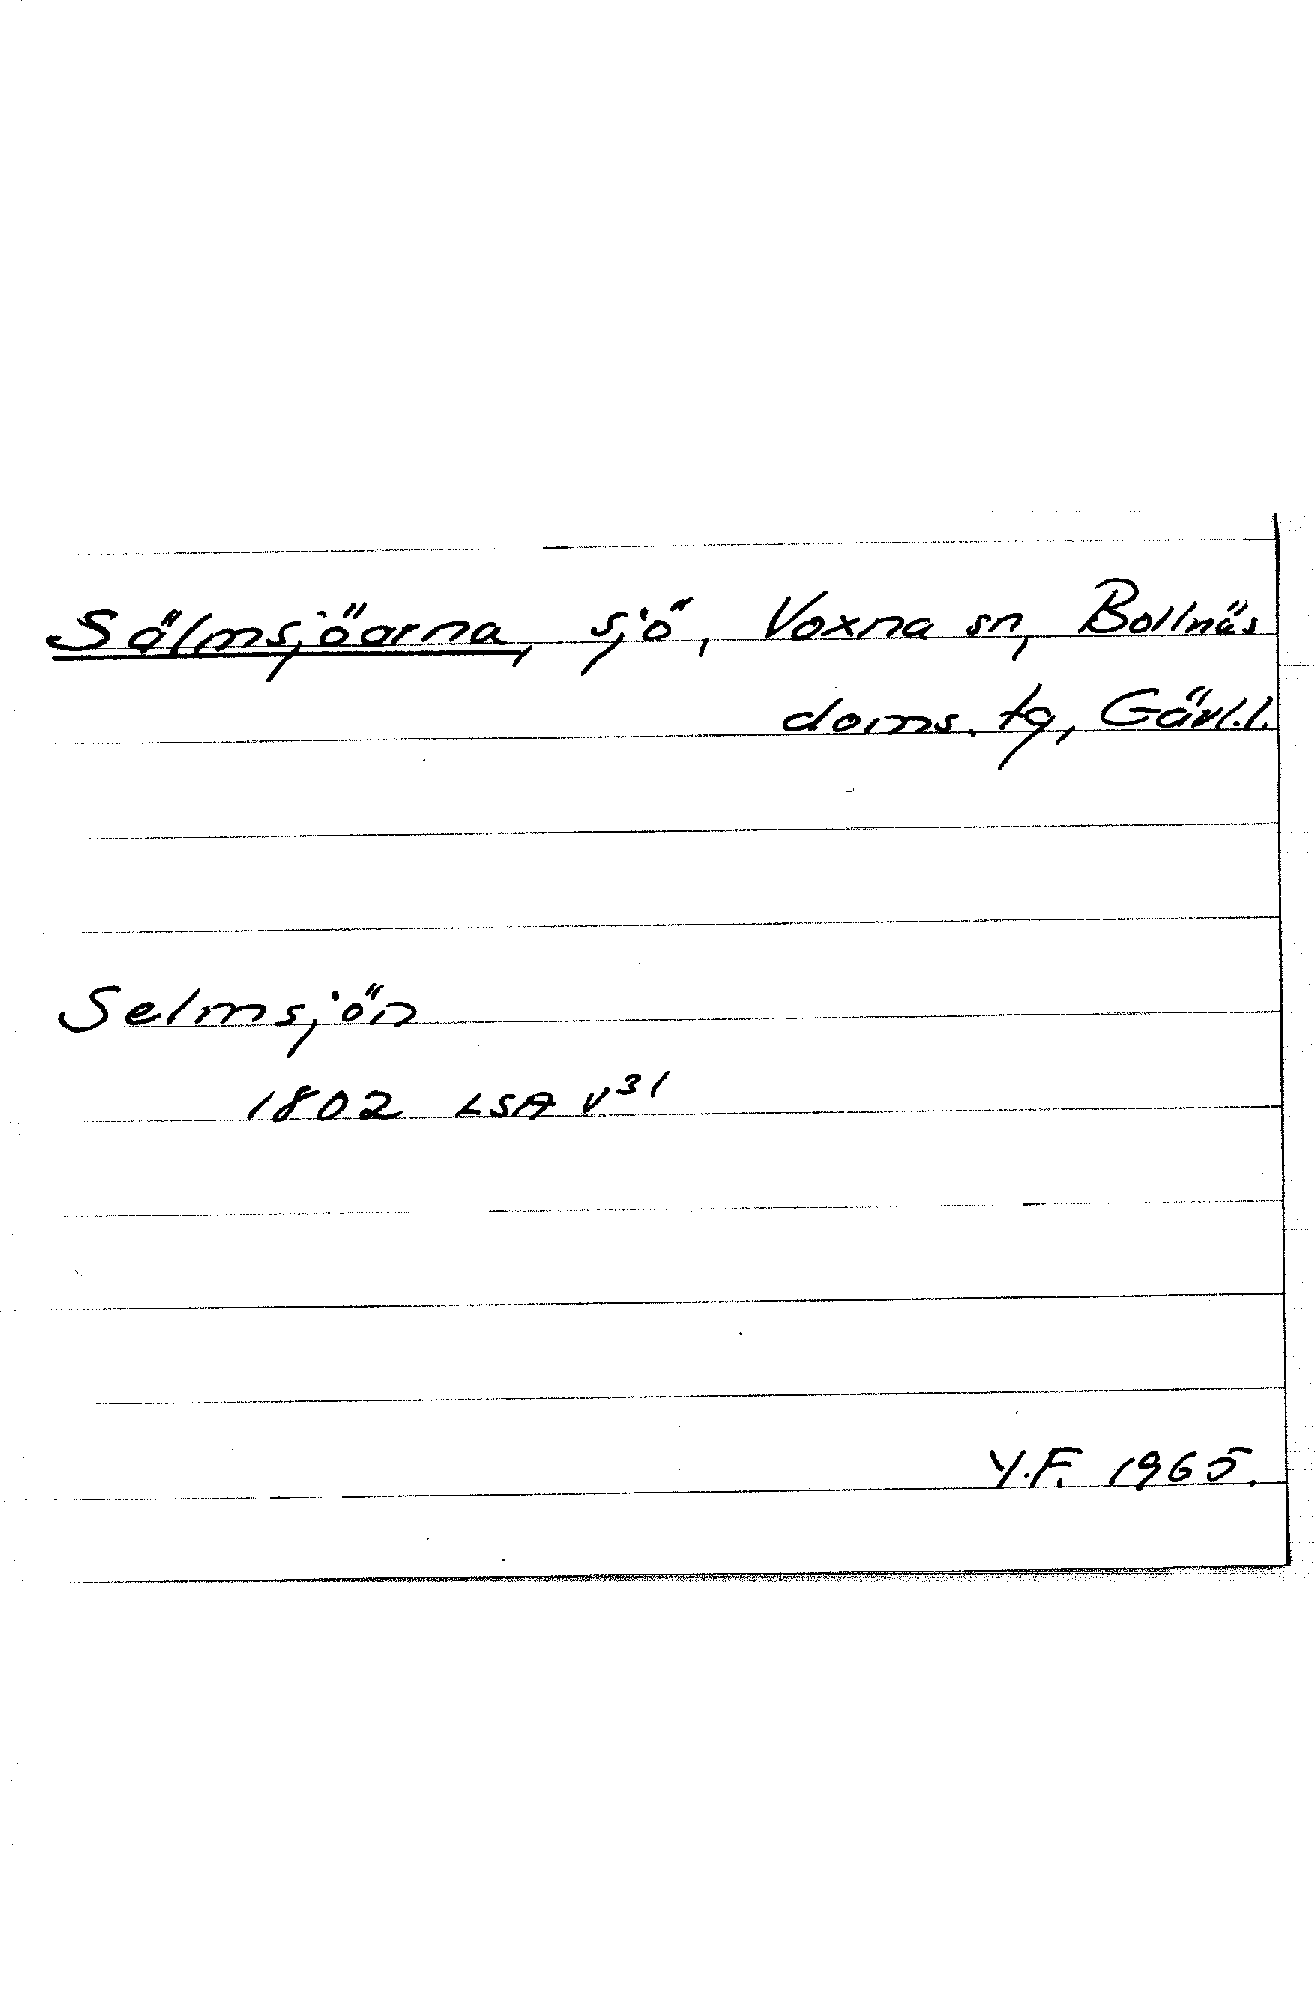 Sälmsjöarna, sjö, Voxna sn, Bollnäs
doms. tg, Gävl.l.
Selmsjön
1802 LSA V31
Y.F. 1965.